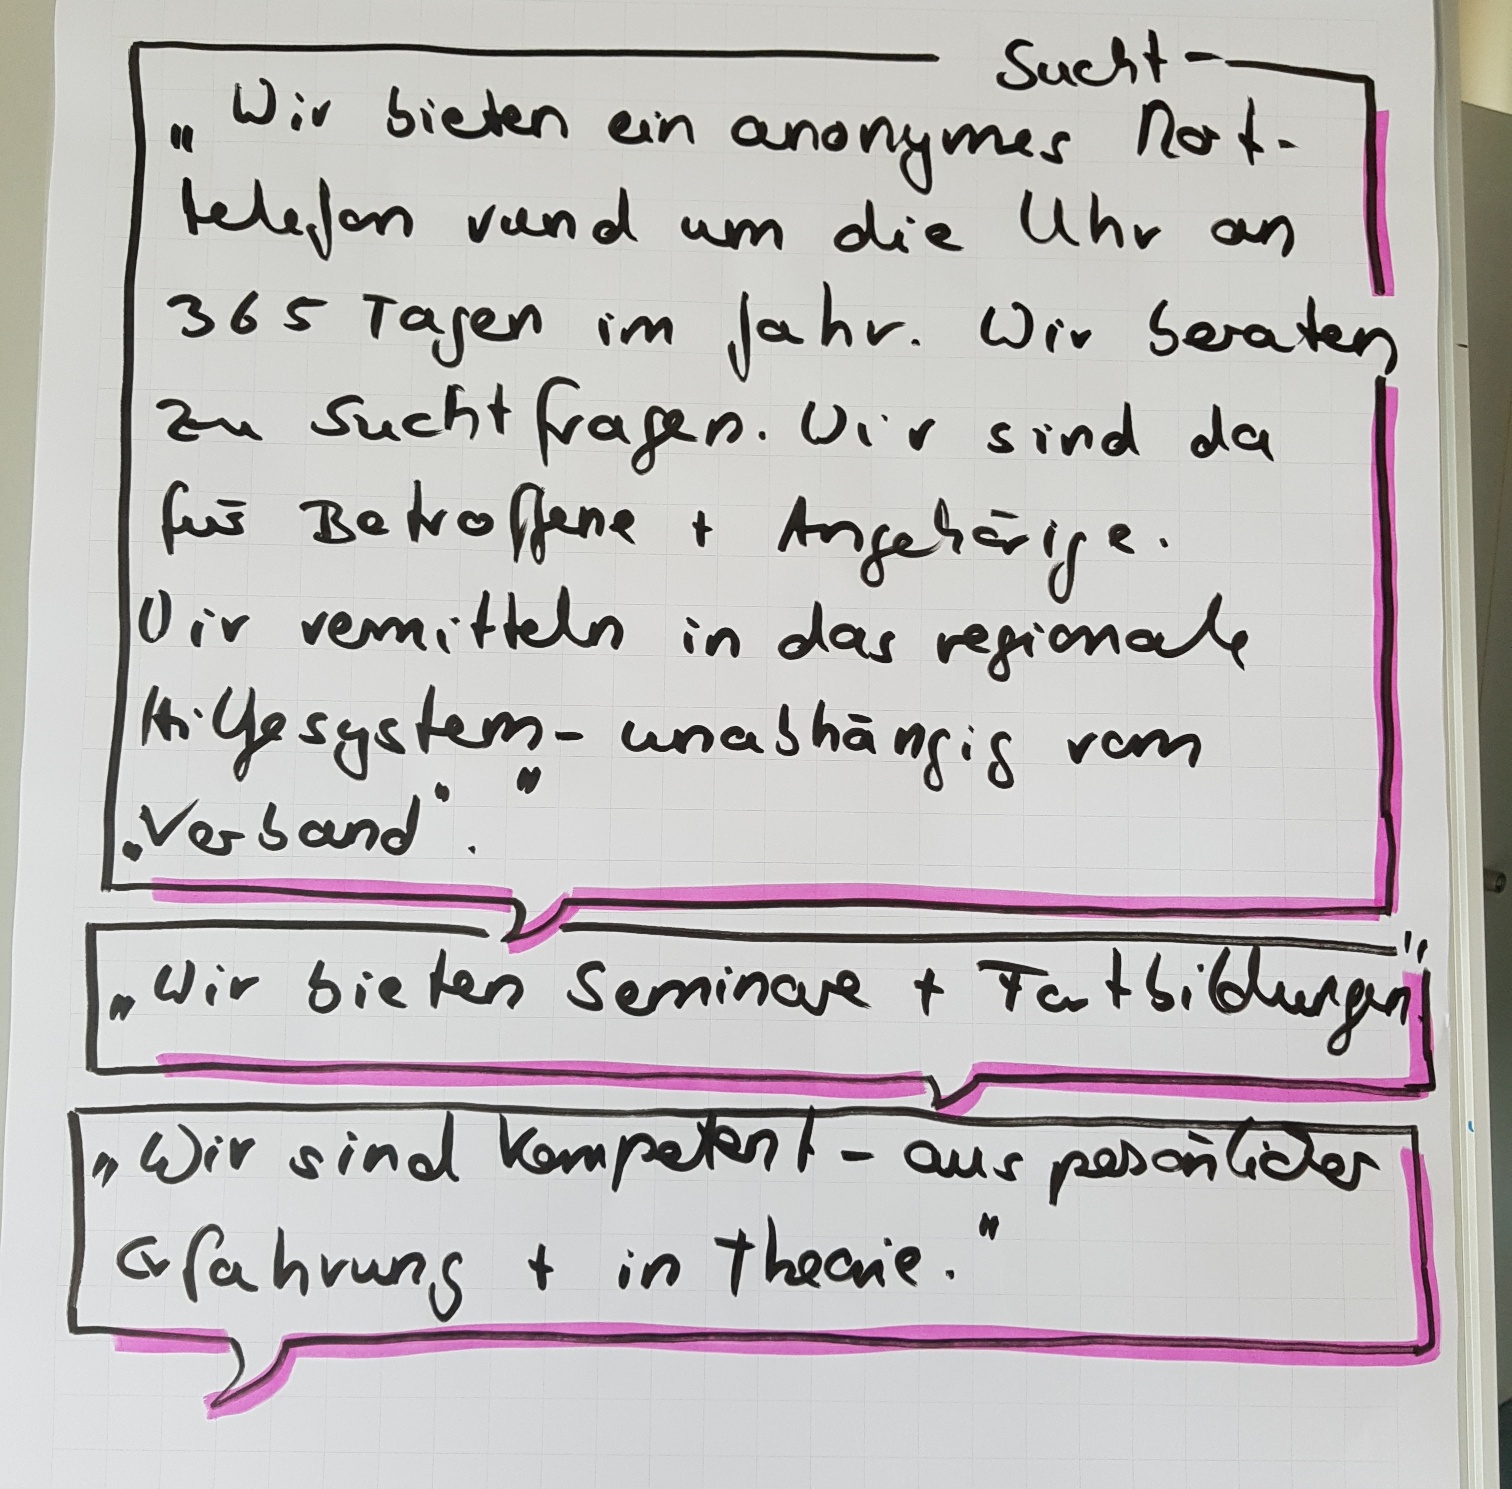 Sucht-
„Wir bieten ein anonymes Not-
telefon rund um die Uhr an
365 Tagen im Jahr. Wir beraten
zu Suchtfragen. Wir sind da
für Betroffene + Angehörige.
Wir vermitteln in das regionale
Hilfesystem - unabhängig vom
„Verband“.“
„Wir bieten Seminare + Fortbildungen.“
„Wir sind kompetent - aus pesönlicher
Erfahrung + in Theorie.“